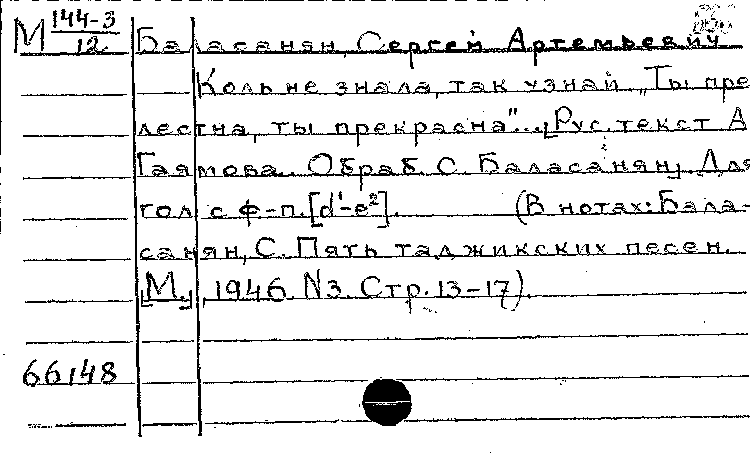 М 144-3/12 Баласанян, Сергей Артемьевич
Коль не знала, так узнай „Ты пре
лестна, ты прекрасна"... [Рус. текст А
Гаямова. Обраб. С. Баласанян]. Для
гол. с ф-п. [d¹-e²]. (В нотах: Бала-
санян, С. Пять таджикских песен.
[М.], 1946. N3. Стр. 13-17).
66148